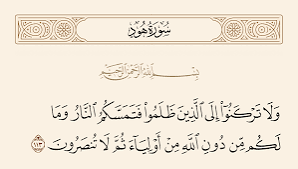 سُورَةُ هُودٍ
بِسْمِ اللَّهِ الرَّحْمَٰنِ الرَّحِيمِ
وَلَا تَرْكَنُوٓا۟ إِلَى ٱلَّذِينَ ظَلَمُوا۟ فَتَمَسَّكُمُ ٱلنَّارُ وَمَا
لَكُم مِّن دُونِ ٱللَّهِ مِنْ أَوْلِيَآءَ ثُمَّ لَا تُنصَرُونَ ١١٣